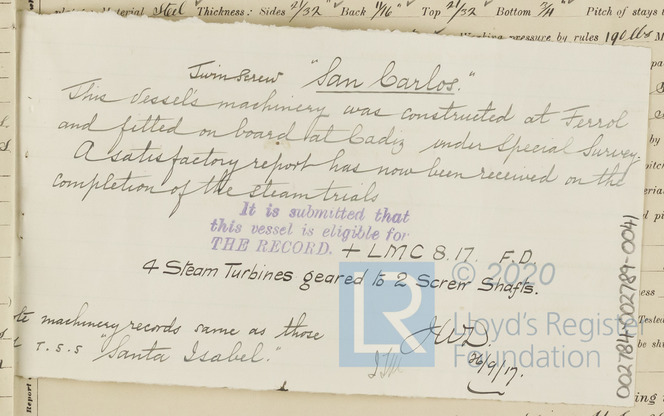 Material Steel Thickness: Sides 21/32 Back 11/16 Top 21/32 Bottom 3/4 Pitch of stays
Working pressure by rules 190 lbs
Twin Screw "San Carlos."
This Vessel's machinery was constructed at Ferrol
and fitted on board at Cadiz under Special Survey.
A satisfactory report has now been received on the
completion of the steam trials
It is submitted that
this vessel is eligible for
THE RECORD. + LMC 8.17. F.D.
4 Steam Turbines geared to 2 Screw Shafts.
machinery records same as those
T.S.S "Santa Isabel."
JWD.
26/9/17.
© 2020
LR
Lloyd's Register
Foundation
002784-002789-0041